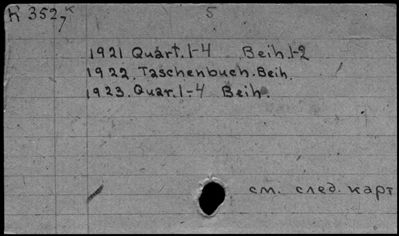 К 352⁷ᴷ 5
1921 Quart. 1-4 Beih. 1-2
1922. Taschenbuch. Beih.
1923. Quar. 1-4 Beih.
см. след. карт